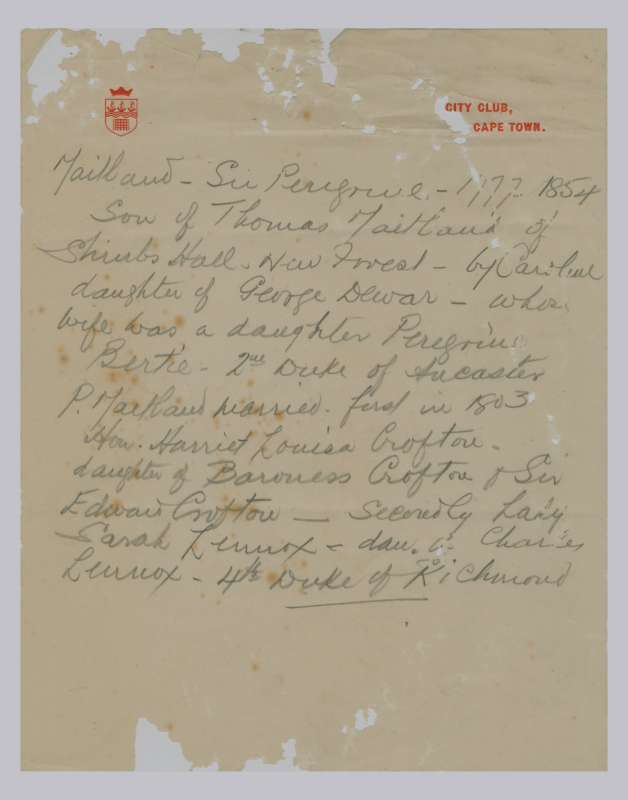 CITY CLUB,
CAPE TOWN.
Maitland - Sir Peregrine - 1777. 1854
Son of Thomas Maitland of
Shrubs Hall. New Forest - by Caroline
daughter of George Dewar - whose
wife was a daughter Peregrine
Bertie - 2nd Duke of Ancaster
P. Maitland married. first in 1803
Hon. Harriet Louisa Crofton -
daughter of Baroness Crofton & Sir
Edward Crofton — Secondly Lady
Sarah Lennox - dau. Charles
Lennox - 4th Duke of Richmond